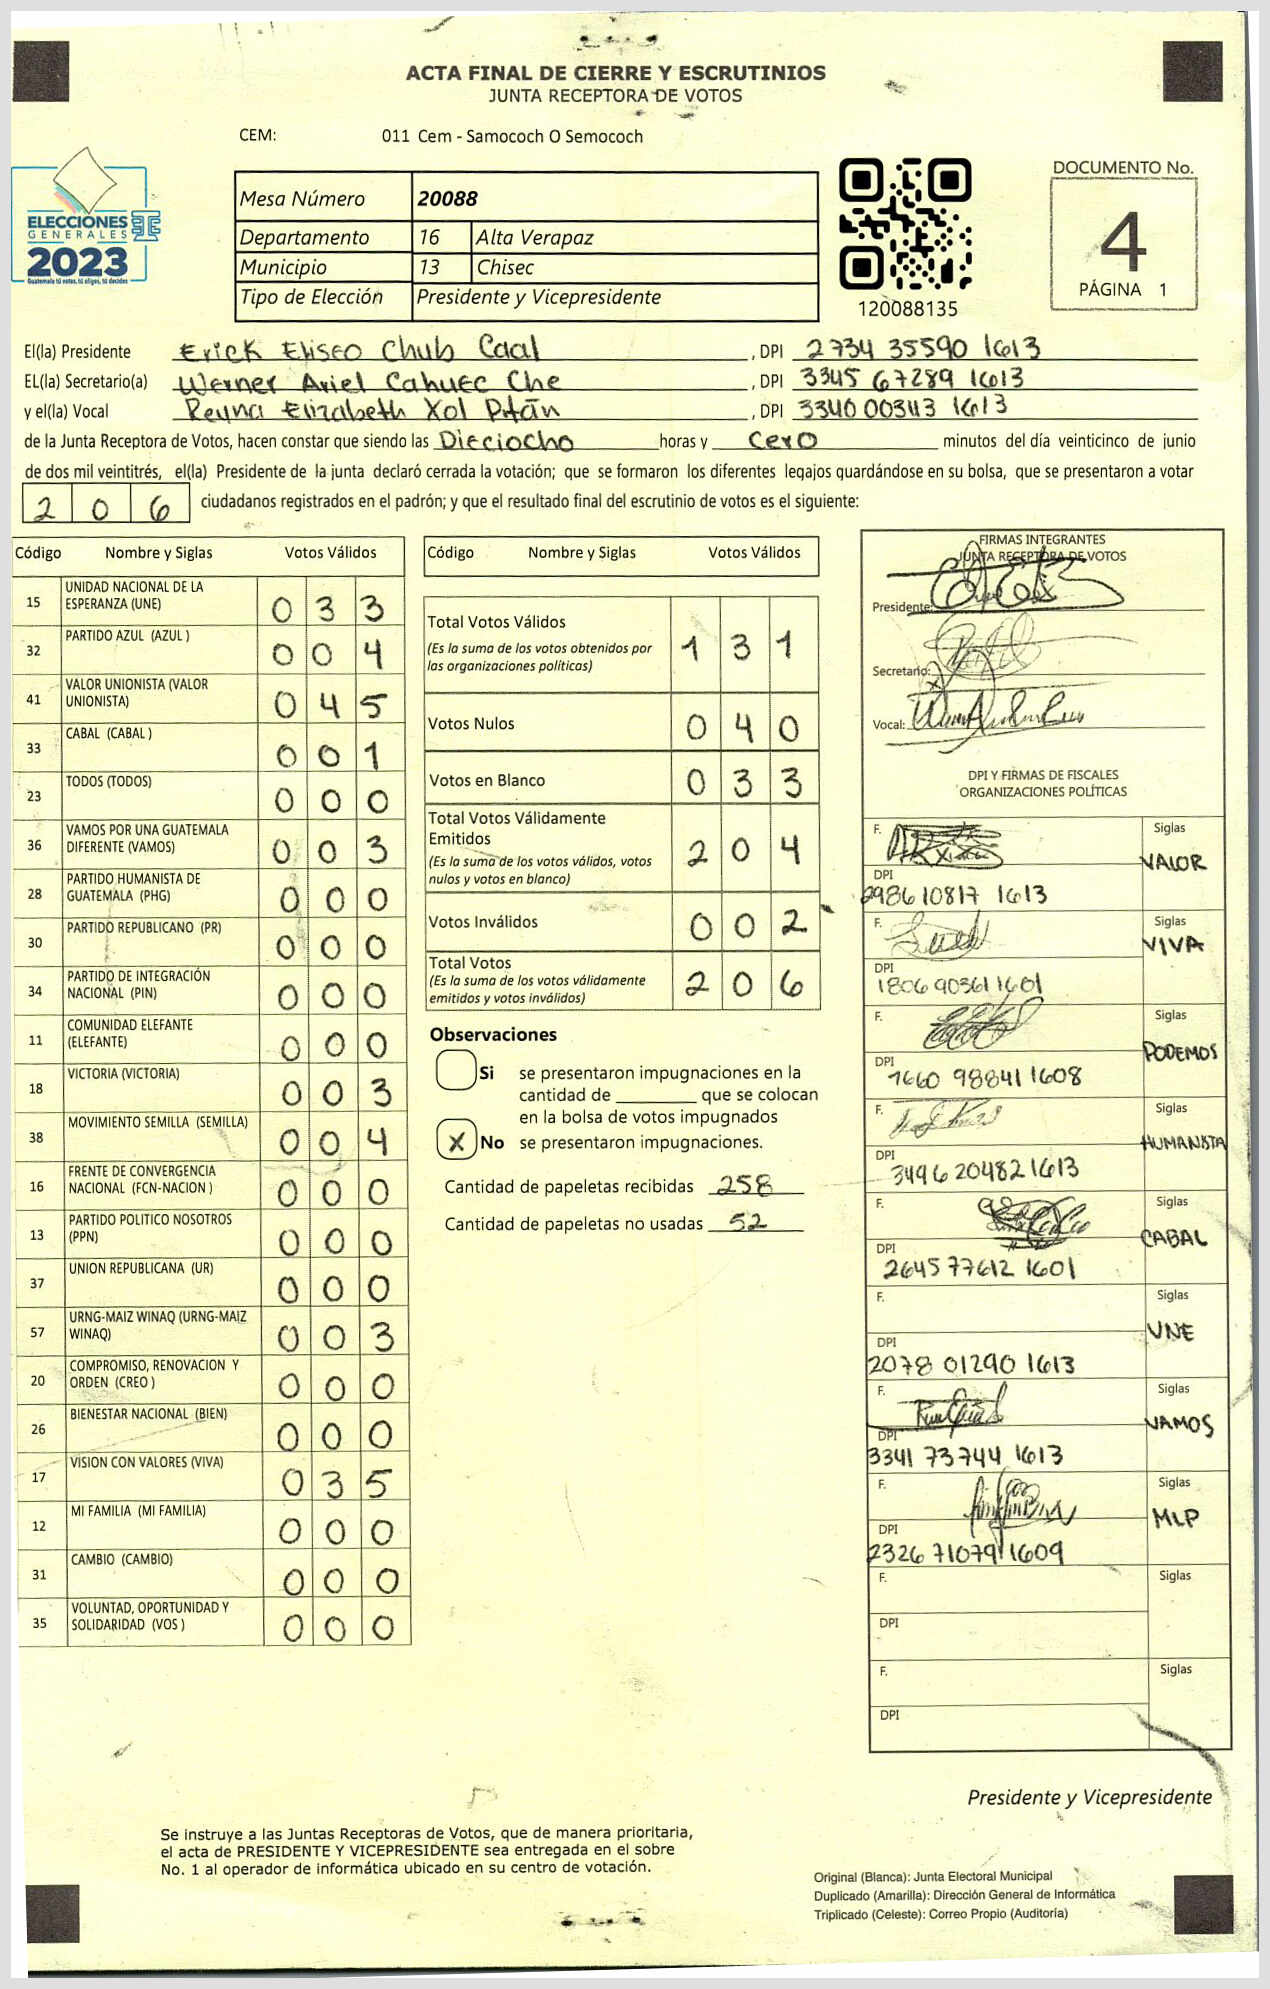 ACTA FINAL DE CIERRE Y ESCRUTINIOS
JUNTA RECEPTORA DE VOTOS
CEM: 011 Cem - Samococh O Semococh
ELECCIONES
GENERALES
2023
Guatemala tú votas, tú eliges, tú decides
Mesa Número 20088
Departamento 16 Alta Verapaz
Municipio 13 Chisec
Tipo de Elección Presidente y Vicepresidente
120088135
DOCUMENTO No.
4
PÁGINA 1
El(la) Presidente Erick Eliseo Chub Caal , DPI 2734 35590 1613
EL(la) Secretario(a) Werner Ariel Cahuec Che , DPI 3345 67289 1613
y el(la) Vocal Reyna Elizabeth Xol Pitán , DPI 3340 00343 1613
de la Junta Receptora de Votos, hacen constar que siendo las Dieciocho horas y Cero minutos del día veinticinco de junio
de dos mil veintitrés, el(la) Presidente de la junta declaró cerrada la votación; que se formaron los diferentes legajos guardándose en su bolsa, que se presentaron a votar
206 ciudadanos registrados en el padrón; y que el resultado final del escrutinio de votos es el siguiente:
Código Nombre y Siglas Votos Válidos
15 UNIDAD NACIONAL DE LA ESPERANZA (UNE) 033
32 PARTIDO AZUL (AZUL ) 004
41 VALOR UNIONISTA (VALOR UNIONISTA) 045
33 CABAL (CABAL ) 001
23 TODOS (TODOS) 000
36 VAMOS POR UNA GUATEMALA DIFERENTE (VAMOS) 003
28 PARTIDO HUMANISTA DE GUATEMALA (PHG) 000
30 PARTIDO REPUBLICANO (PR) 000
34 PARTIDO DE INTEGRACIÓN NACIONAL (PIN) 000
11 COMUNIDAD ELEFANTE (ELEFANTE) 000
18 VICTORIA (VICTORIA) 003
38 MOVIMIENTO SEMILLA (SEMILLA) 004
16 FRENTE DE CONVERGENCIA NACIONAL (FCN-NACION ) 000
13 PARTIDO POLITICO NOSOTROS (PPN) 000
37 UNION REPUBLICANA (UR) 000
57 URNG-MAIZ WINAQ (URNG-MAIZ WINAQ) 003
20 COMPROMISO, RENOVACION Y ORDEN (CREO ) 000
26 BIENESTAR NACIONAL (BIEN) 000
17 VISION CON VALORES (VIVA) 035
12 MI FAMILIA (MI FAMILIA) 000
31 CAMBIO (CAMBIO) 000
35 VOLUNTAD, OPORTUNIDAD Y SOLIDARIDAD (VOS ) 000
Código Nombre y Siglas Votos Válidos
Total Votos Válidos 131
(Es la suma de los votos obtenidos por
las organizaciones políticas)
Votos Nulos 040
Votos en Blanco 033
Total Votos Válidamente
Emitidos 204
(Es la suma de los votos válidos, votos
nulos y votos en blanco)
Votos Inválidos 002
Total Votos 206
(Es la suma de los votos válidamente
emitidos y votos inválidos)
Observaciones
Si se presentaron impugnaciones en la
cantidad de ________ que se colocan
en la bolsa de votos impugnados
X No se presentaron impugnaciones.
Cantidad de papeletas recibidas 258
Cantidad de papeletas no usadas 52
FIRMAS INTEGRANTES
JUNTA RECEPTORA DE VOTOS
Presidente:
Secretario:
Vocal:
DPI Y FIRMAS DE FISCALES
ORGANIZACIONES POLÍTICAS
F. Siglas
VALOR
DPI
2986 10817 1613
F. Siglas
VIVA
DPI
1806 90361 1601
F. Siglas
PODEMOS
DPI
1660 98841 1608
F. Siglas
HUMANISTA
DPI
3496 20482 1613
F. Siglas
CABAL
DPI
2645 77612 1601
F. Siglas
UNE
DPI
2078 01290 1613
F. Siglas
VAMOS
DPI
3341 73744 1613
F. Siglas
MLP
DPI
2326 71079 1609
F. Siglas
DPI
F. Siglas
DPI
Presidente y Vicepresidente
Se instruye a las Juntas Receptoras de Votos, que de manera prioritaria,
el acta de PRESIDENTE Y VICEPRESIDENTE sea entregada en el sobre
No. 1 al operador de informática ubicado en su centro de votación.
Original (Blanca): Junta Electoral Municipal
Duplicado (Amarilla): Dirección General de Informática
Triplicado (Celeste): Correo Propio (Auditoría)